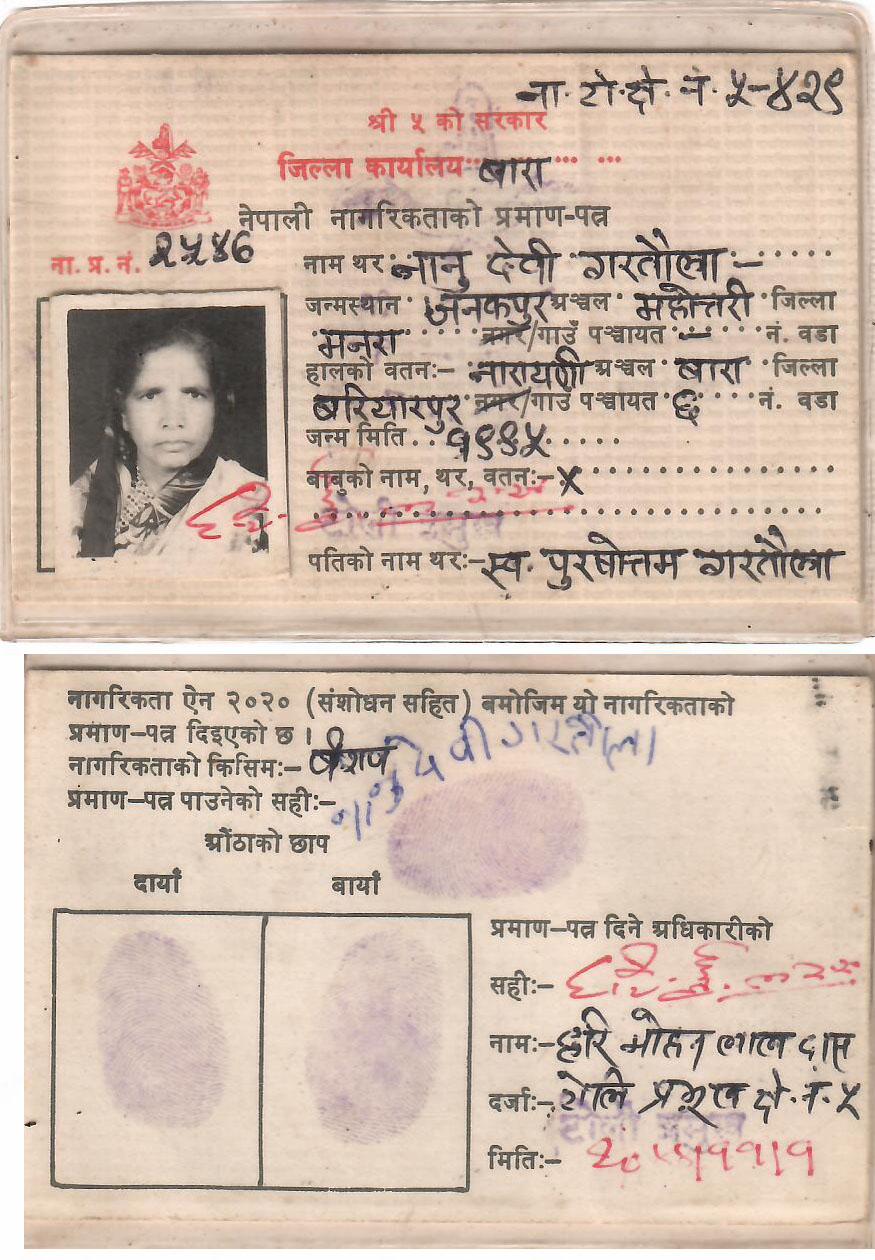 ना. टो. क्षे. नं. ५-४२९
श्री ५ को सरकार
जिल्ला कार्यालय बारा
नेपाली नागरिकताको प्रमाण-पत्र
ना. प्र. नं. २५४६
नाम थर नानु देवी गरतौला :-
जन्मस्थान जनकपुर अञ्चल महोत्तरी जिल्ला
मनरा नगर/गाउँ पञ्चायत - नं. वडा
हालको वतन:- नारायणी अञ्चल बारा जिल्ला
बरियारपुर नगर/गाउँ पञ्चायत ६ नं. वडा
जन्म मिति. १९९५
बाबुको नाम, थर, वतन:- ×
टोली प्रमुख
पतिको नाम थर:- स्व. पुरषोत्तम गरतौला
नागरिकता ऐन २०२० (संशोधन सहित) बमोजिम यो नागरिकताको
प्रमाण-पत्र दिइएको छ ।
नागरिकताको किसिम:- वंशज
प्रमाण-पत्र पाउनेको सही:- नानु देवी गरतौला
औंठाको छाप
दायाँ बायाँ
प्रमाण-पत्र दिने अधिकारीको
सही:-
नाम:- हरि मोहन लाल दास
दर्जा:- टोलि प्रमुख क्षे. नं. ५
टोली प्रमुख
मिति:-